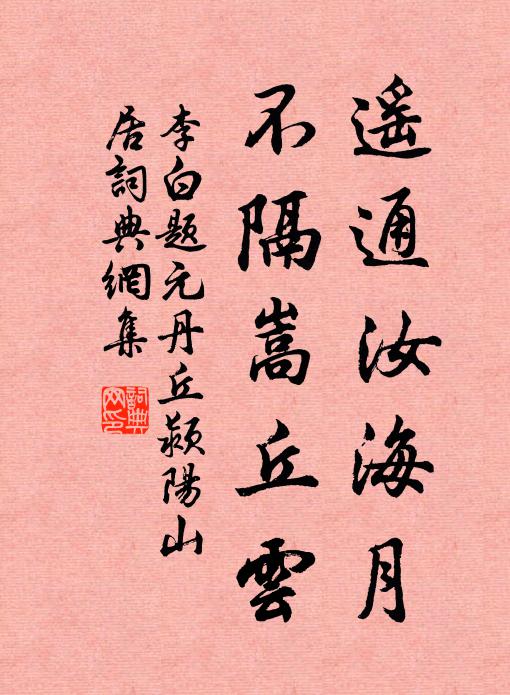 遥通汝海月
不隔嵩丘雲
李白题元丹丘颍陽山
居詞典網集
詞典
网印